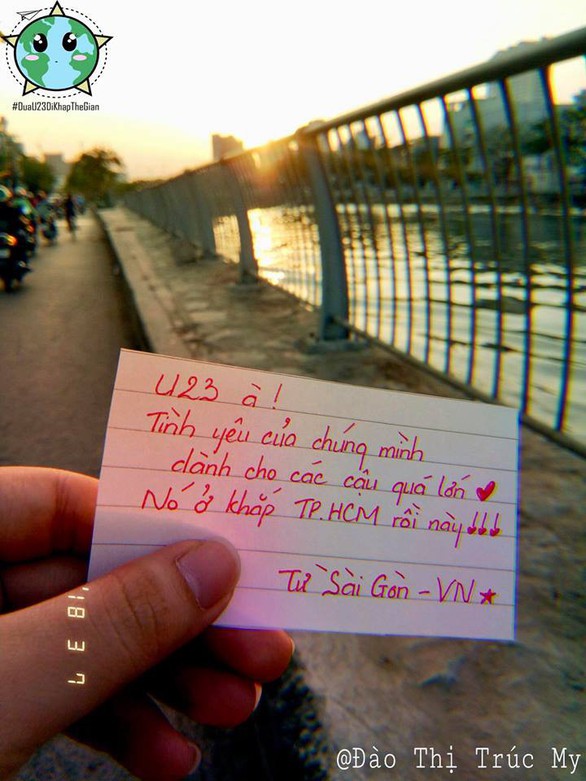 #DuaU23DiKhapTheGian
U23 à!
Tình yêu của chúng mình
dành cho các cậu quá lớn
Nó ở khắp TP.HCM rồi này!!!
Từ Sài Gòn - VN
'18 3 7
@Đào Thi Trúc My